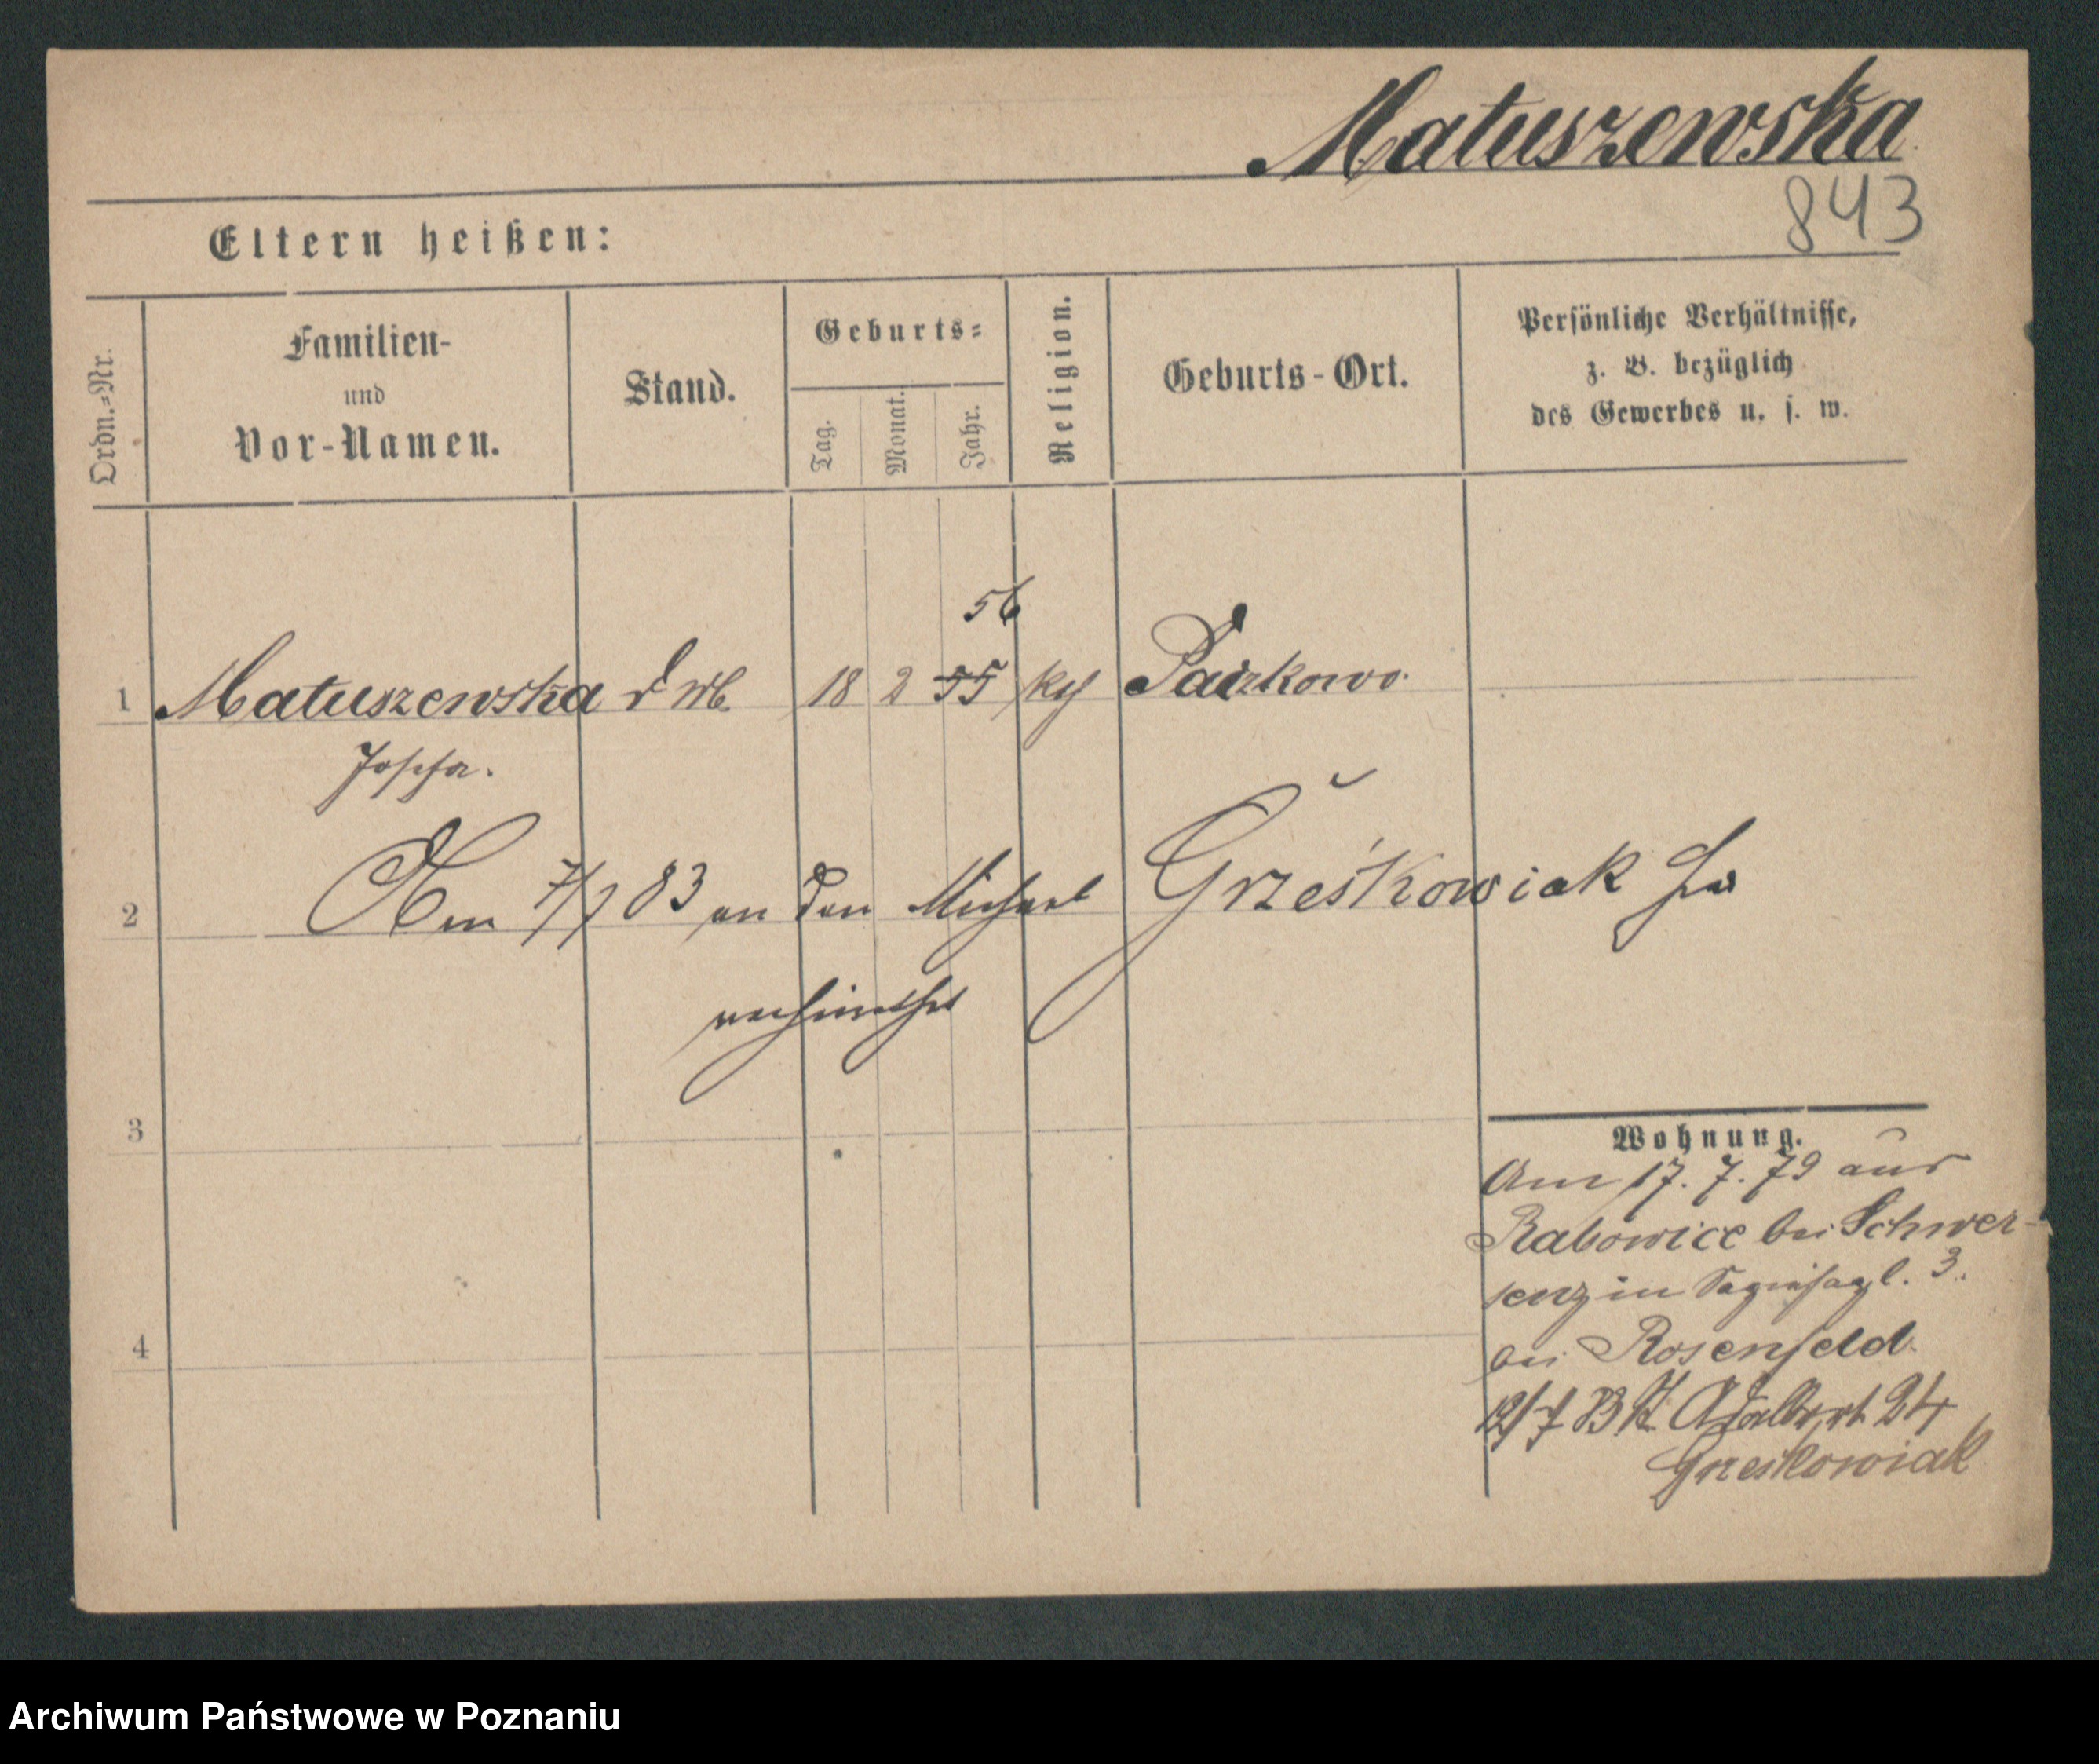 Matuszewska
843
Eltern heißen:
Ordn.=Nr.
Familien-
und
Vor-Namen.
Stand.
Geburts=
Tag.
Monat.
Jahr.
Religion.
Geburts-Ort.
Persönliche Verhältnisse,
z. B. bezüglich
des Gewerbes u. s. w.
56
1 Matuszewska 18 2 55 Paczkowo.
Josefa.
2 Am 7/7 83 an den Michael Grześkowiak
verheirathet
3
Wohnung.
Am 17. 7. 79 aus
Rabowice bei Schwer-
senz in 3.
4
bei Rosenfeld
12/7 83 St. Adalbert 24
Grzeskowiak
Archiwum Państwowe w Poznaniu